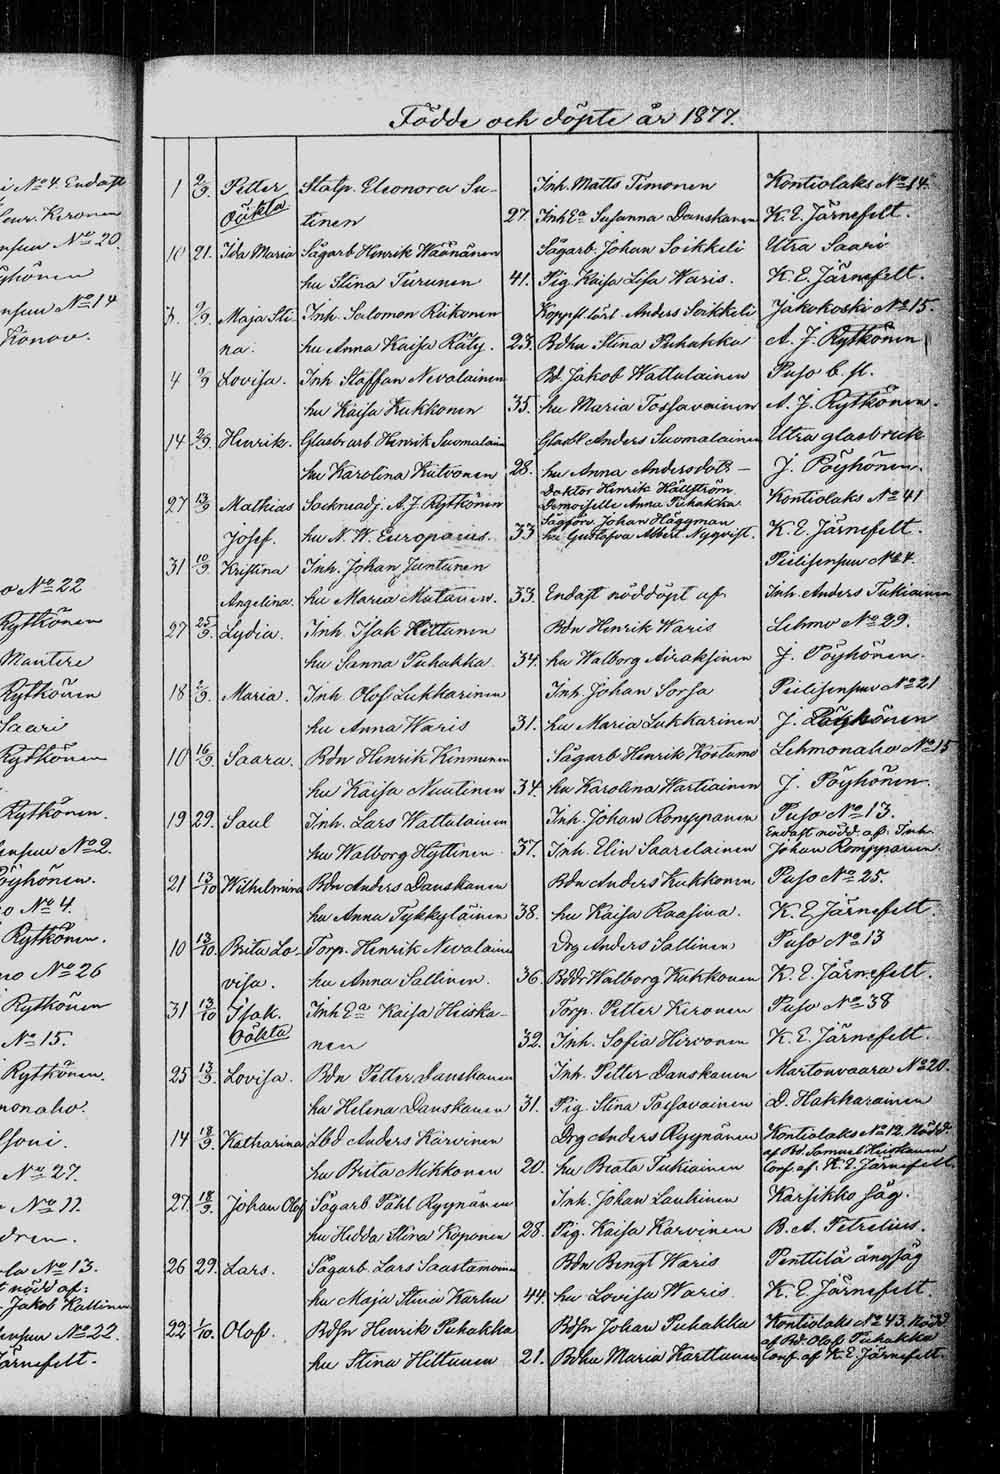 i No 4. Endast
Keronen
No 20.
No 14
o No 22
Rytkönen
Mantere
Rytkönen
Saari
Rytkönen
Rytkönen.
No 2.
Pöyhönen.
o No 4.
Rytkönen.
No 26
Rytkönen
No 15.
Rytkönen.
No 27.
No 11.
No 13.
nödd af:
Jakob Kallinen
No 22.
Järnefelt.
Födde och döpte år 1877.
1 2/9 Petter Statp. Eleonora Su- Inh. Matts Timonen Kontiolaks No 14.
Oäkta tinen 27. Inh Ea Susanna Danskanen K. E. Järnefelt.
10 21. Ida Maria Sågarb Henrik Wäänänen Sågarb. Johan Soikkeli Utra Saari
hu Stina Turunen 41. Pig. Kaisa Lisa Waris. K. E. Järnefelt.
9/9 Maja Sti- Inh. Salomon Riikonen Anders Soikkeli Jakokoski No 15.
na. hu Anna Kaisa Räty. 23. Bdhu Stina Puhakka A. J. Rytkönen
4 9/9 Lovisa. Inh Staffan Nevalainen Bd. Jakob Wattulainen Puso b. fl.
hu Kaisa Kukkonen 35. hu Maria Tossavainen A. J. Rytkönen.
14 Henrik. Glasbr arb Henrik Suomalain Glasbl Anders Suomalainen Utra glasbruk
hu Karolina Kiitvonen 28. hu Anna Andersdotr – J. Pöyhönen.
27 13/9 Mathias Sockneadj. A. J. Rytkönen Doktor Henrik Hällström Kontiolaks No 41
Demoiselle Anna Puhakka
Sågförv Johan Häggman
Josef. hu N. W. Europæus. 33 hu Gustafva Albert. Nyqvist. K. E. Järnefelt.
31 10/9 Kristina Inh. Johan Juntunen Pielisensuu No 4.
Angelina. hu Maria Mutanen. 33. Endast nöddöpt af Inh. Anders Tukiainen
27 25/9. Lydia. Inh. Isak Hiltunen Bdn Henrik Waris Lehmo No 29.
hu Sanna Puhakka 34. hu Walborg Airaksinen J. Pöyhönen.
18 2/9 Maria. Inh. Olof Lukkarinen Inh. Johan Sorsa Pielisensuu No 21
hu Anna Waris 31. hu Maria Lukkarinen J. Pöyhönen
10 16/9. Saara. Bdn Henrik Kinnunen Sågarb Henrik Kostamo Lehmonaho No 15
hu Kaisa Nuutinen 34. hu Karolina Wartiainen J. Pöyhönen.
19 29. Saul Inh. Lars Wattulainen Inh. Johan Romppanen Puso No 13.
Endast nödd. af Inh.
hu Walborg Hyttinen. 37. Inh. Elin Saarelainen Johan Romppanen.
21 13/10 Wilhelmina Bdn Anders Danskanen Bdn Anders Kukkonen Puso No 25.
hu Anna Tykkyläinen 38. hu Kaisa Raasina. K. E. Järnefelt.
10 13/10. Brita Lo- Torp. Henrik Nevalainen Drg Anders Sallinen Puso No 13
visa. hu Anna Sallinen. 36. Bddr Walborg Kukkonen K. E. Järnefelt.
31 13/10 Isak. Inh Ea Kaisa Heiska- Torp. Petter Keronen Puso No 38
Oäkta nen 32. Inh. Sofia Hirvonen K. E. Järnefelt.
25 13/9. Lovisa. Bdn Petter Danskanen Inh. Petter Danskanen Martonvaara No 20.
hu Helena Danskanen 31. Pig. Stina Tossavainen D. Hakkarainen
14 18/9. Katharina Lbd Anders Karvinen Drg Anders Ryynänen Kontiolaks No 12. Nödd
af Bd. Samuel Heiskanen
hu Brita Mikkonen 20. hu Beata Tukiainen Conf. af K. E. Järnefelt
27. 18/9. Johan Olof Sågarb. Påhl Ryynänen Inh. Johan Laukinen Karsikko såg.
hu Hedda Stina Koponen 28. Pig. Kaisa Karvinen B. A. Petrelius.
26 29. Lars. Sågarb. Lars Saastamoinen Bdn Bengt Waris Penttilä ångsåg
hu Maja Stina Karhu 44. hu Lovisa Waris. K. E. Järnefelt.
22 1/10. Olof. Bdsn Henrik Puhakka Bdsn Johan Puhakka Kontiolaks No 43. Nödd
af Bd. Olof Puhakka
hu Stina Hiltunen 21. Bdhu Maria Karttunen Conf. af K. E. Järnefelt.